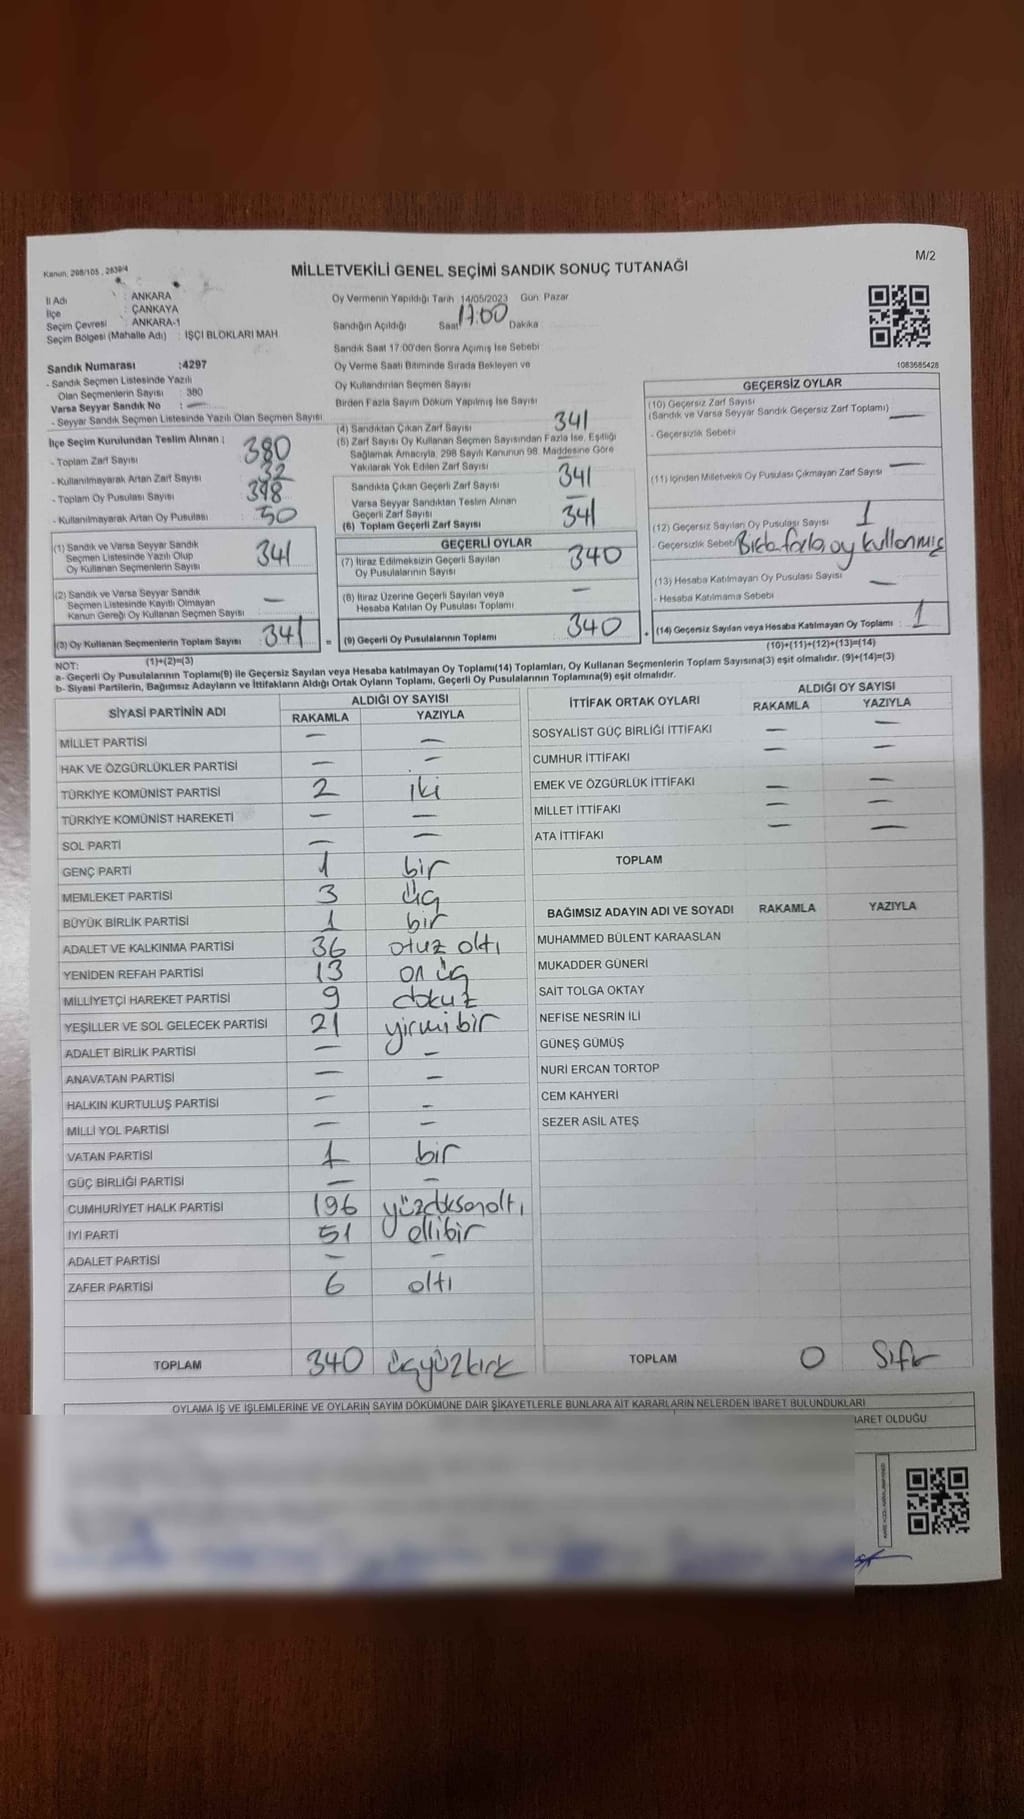 M/2
Kanun: 298/105 , 2839/4
MİLLETVEKİLİ GENEL SEÇİMİ SANDIK SONUÇ TUTANAĞI
İl Adı : ANKARA
İlçe : ÇANKAYA
Seçim Çevresi : ANKARA-1
Seçim Bölgesi (Mahalle Adı) : İŞÇİ BLOKLARI MAH.
Sandık Numarası :4297
- Sandık Seçmen Listesinde Yazılı
Olan Seçmenlerin Sayısı : 380
Varsa Seyyar Sandık No : —
- Seyyar Sandık Seçmen Listesinde Yazılı Olan Seçmen Sayısı
İlçe Seçim Kurulundan Teslim Alınan :
- Toplam Zarf Sayısı 380
- Kullanılmayarak Artan Zarf Sayısı 32
- Toplam Oy Pusulası Sayısı 398
- Kullanılmayarak Artan Oy Pusulası 50
(1) Sandık ve Varsa Seyyar Sandık
Seçmen Listesinde Yazılı Olup
Oy Kullanan Seçmenlerin Sayısı 341
(2) Sandık ve Varsa Seyyar Sandık
Seçmen Listesinde Kayıtlı Olmayan
Kanun Gereği Oy Kullanan Seçmen Sayısı —
(3) Oy Kullanan Seçmenlerin Toplam Sayısı : 341 =
(1)+(2)=(3)
Oy Vermenin Yapıldığı Tarih 14/05/2023 Gün: Pazar
Sandığın Açıldığı Saat 17:00 Dakika
Sandık Saat 17:00'den Sonra Açımış İse Sebebi
Oy Verme Saati Bitiminde Sırada Bekleyen ve
Oy Kullandırılan Seçmen Sayısı
Birden Fazla Sayım Döküm Yapılmış İse Sayısı
(4) Sandıktan Çıkan Zarf Sayısı 341
(5) Zarf Sayısı Oy Kullanan Seçmen Sayısından Fazla İse, Eşitliği
Sağlamak Amacıyla, 298 Sayılı Kanunun 98. Maddesine Göre
Yakılarak Yok Edilen Zarf Sayısı —
Sandıkta Çıkan Geçerli Zarf Sayısı 341
Varsa Seyyar Sandıktan Teslim Alınan
Geçerli Zarf Sayısı —
(6) Toplam Geçerli Zarf Sayısı 341
GEÇERLİ OYLAR
(7) İtiraz Edilmeksizin Geçerli Sayılan
Oy Pusulalarının Sayısı 340
(8) İtiraz Üzerine Geçerli Sayılan veya
Hesaba Katılan Oy Pusulası Toplamı —
(9) Geçerli Oy Pusulalarının Toplamı 340
1083685428
GEÇERSİZ OYLAR
(10) Geçersiz Zarf Sayısı
(Sandık ve Varsa Seyyar Sandık Geçersiz Zarf Toplamı) —
- Geçersizlik Sebebi
(11) İçinden Milletvekili Oy Pusulası Çıkmayan Zarf Sayısı —
(12) Geçersiz Sayılan Oy Pusulası Sayısı 1
- Geçersizlik Sebebi Birden fazla oy kullanmış
(13) Hesaba Katılmayan Oy Pusulası Sayısı —
- Hesaba Katılmama Sebebi
(14) Geçersiz Sayılan veya Hesaba Katılmayan Oy Toplamı : 1
(10)+(11)+(12)+(13)=(14)
NOT:
a- Geçerli Oy Pusulalarının Toplamı(9) ile Geçersiz Sayılan veya Hesaba katılmayan Oy Toplamı(14) Toplamları, Oy Kullanan Seçmenlerin Toplam Sayısına(3) eşit olmalıdır. (9)+(14)=(3)
b- Siyasi Partilerin, Bağımsız Adayların ve İttifakların Aldığı Ortak Oyların Toplamı, Geçerli Oy Pusulalarının Toplamına(9) eşit olmalıdır.
SİYASİ PARTİNİN ADI ALDIĞI OY SAYISI
RAKAMLA YAZIYLA
MİLLET PARTİSİ — —
HAK VE ÖZGÜRLÜKLER PARTİSİ — —
TÜRKİYE KOMÜNİST PARTİSİ 2 iki
TÜRKİYE KOMÜNİST HAREKETİ — —
SOL PARTİ — —
GENÇ PARTİ 1 bir
MEMLEKET PARTİSİ 3 üç
BÜYÜK BİRLİK PARTİSİ 1 bir
ADALET VE KALKINMA PARTİSİ 36 otuz altı
YENİDEN REFAH PARTİSİ 13 on üç
MİLLİYETÇİ HAREKET PARTİSİ 9 dokuz
YEŞİLLER VE SOL GELECEK PARTİSİ 21 yirmi bir
ADALET BİRLİK PARTİSİ — —
ANAVATAN PARTİSİ — —
HALKIN KURTULUŞ PARTİSİ — —
MİLLİ YOL PARTİSİ — —
VATAN PARTİSİ 1 bir
GÜÇ BİRLİĞİ PARTİSİ — —
CUMHURİYET HALK PARTİSİ 196 yüzdoksanaltı
İYİ PARTİ 51 ellibir
ADALET PARTİSİ — —
ZAFER PARTİSİ 6 altı
TOPLAM 340 üçyüzkırk
İTTİFAK ORTAK OYLARI ALDIĞI OY SAYISI
RAKAMLA YAZIYLA
SOSYALİST GÜÇ BİRLİĞİ İTTİFAKI — —
CUMHUR İTTİFAKI — —
EMEK VE ÖZGÜRLÜK İTTİFAKI — —
MİLLET İTTİFAKI — —
ATA İTTİFAKI — —
TOPLAM
BAĞIMSIZ ADAYIN ADI VE SOYADI RAKAMLA YAZIYLA
MUHAMMED BÜLENT KARAASLAN
MUKADDER GÜNERİ
SAİT TOLGA OKTAY
NEFİSE NESRİN İLİ
GÜNEŞ GÜMÜŞ
NURİ ERCAN TORTOP
CEM KAHYERİ
SEZER ASİL ATEŞ
TOPLAM 0 Sıfır
OYLAMA İŞ VE İŞLEMLERİNE VE OYLARIN SAYIM DÖKÜMÜNE DAİR ŞİKAYETLERLE BUNLARA AİT KARARLARIN NELERDEN İBARET BULUNDUKLARI
BARET OLDUĞU